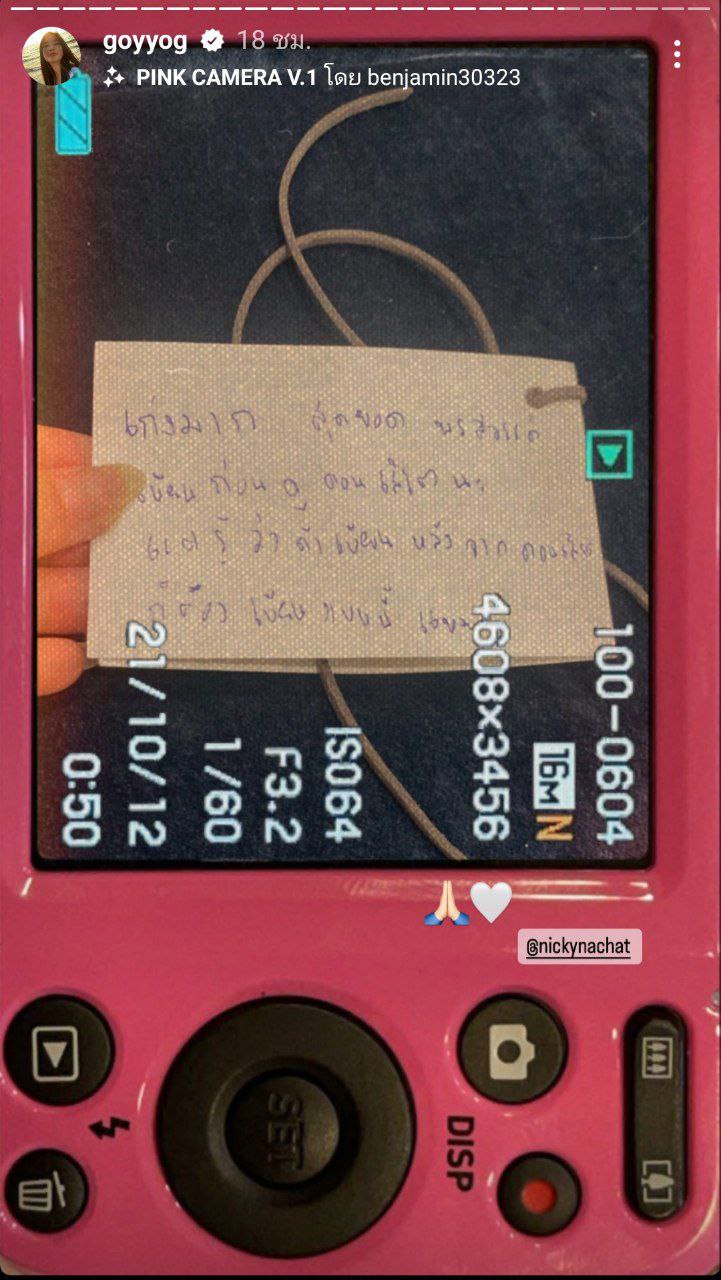 goyyog 18 ชม.
PINK CAMERA V.1 โดย benjamin30323
เก่งมาก สุดยอด พรสวรรค์
เขียน ก่อน ดู คอนเสิร์ต นะ
แต่ รู้ ว่า ถ้า เขียน หลัง จาก คอนเสิร์ต
ก็ ต้อง เขียน แบบนี้
100-0604
16M N
4608×3456
ISO64
F3.2
1/60
21/10/12
0:50
@nickynachat
SET
DISP